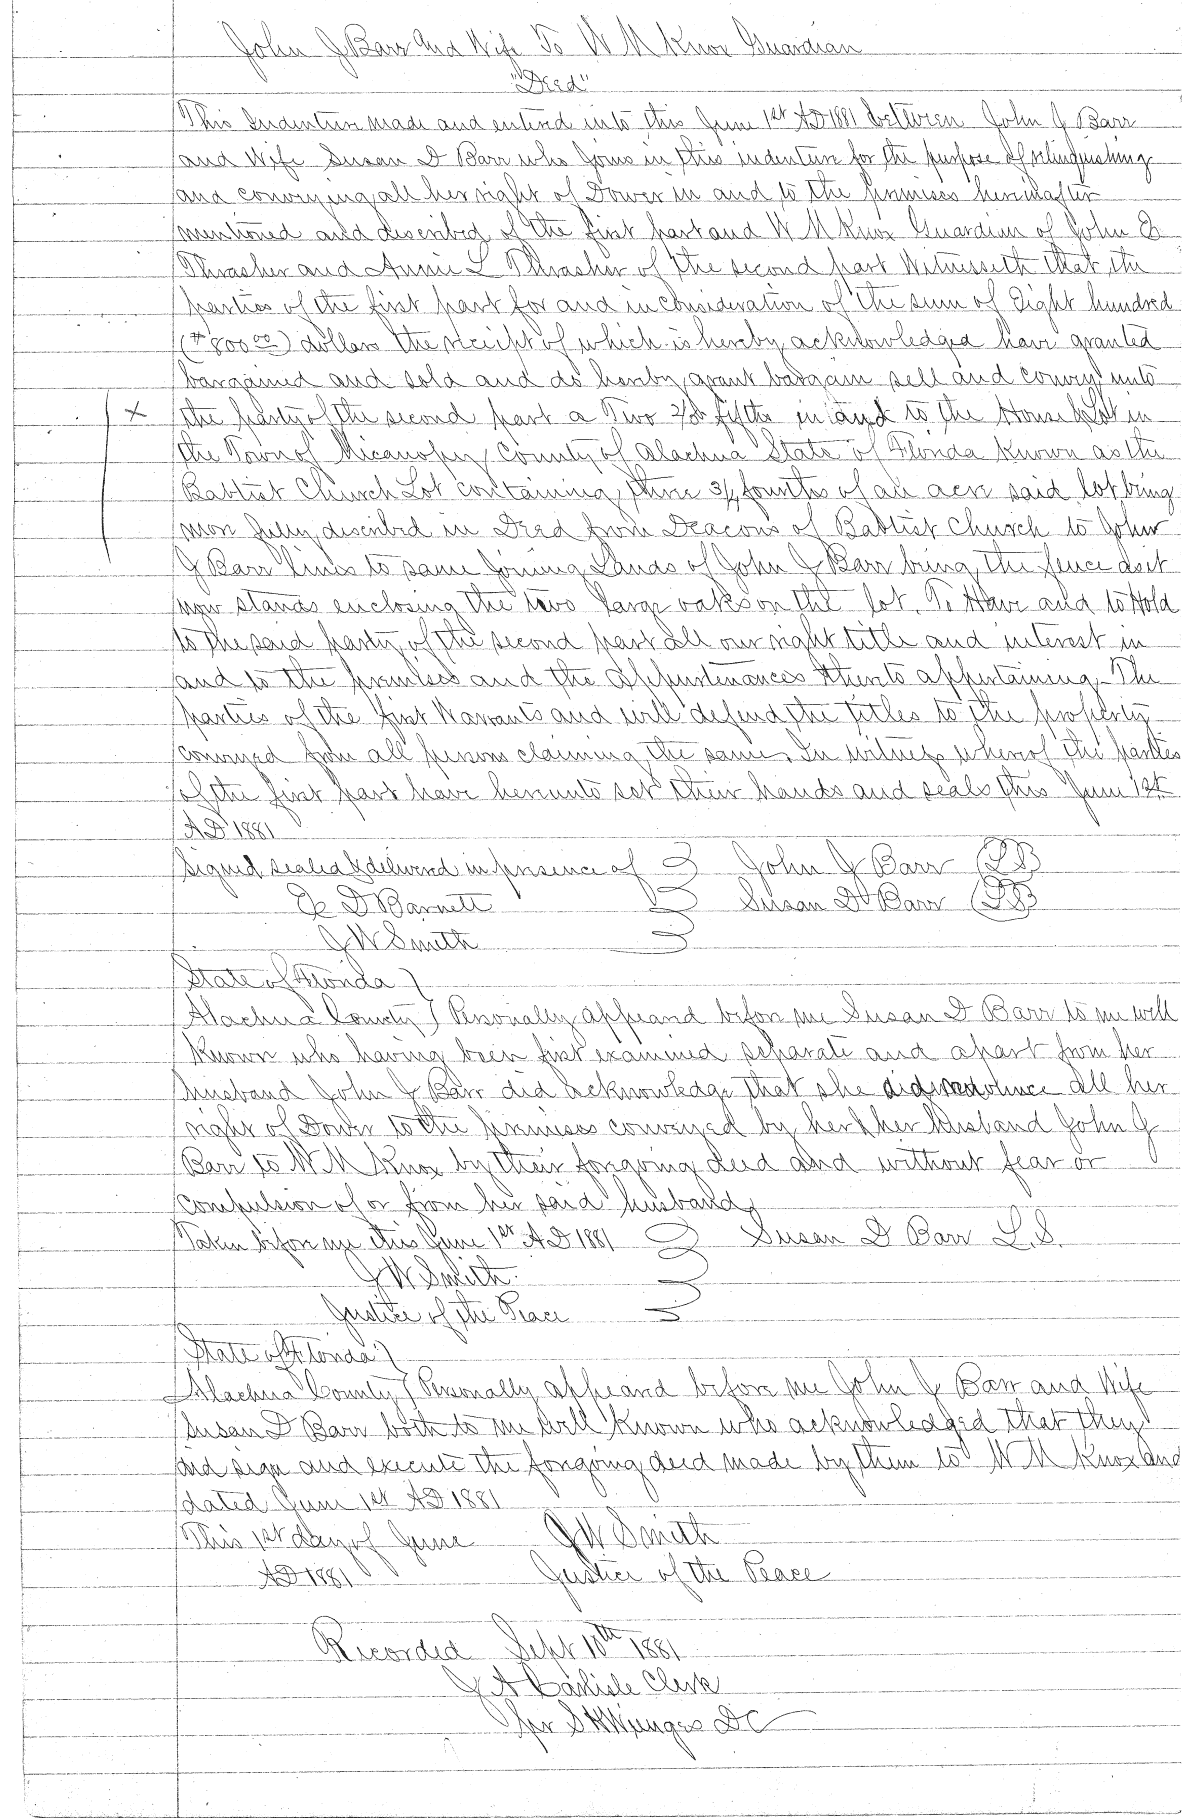 John J Barr and Wife To W M Knox Guardian
"Deed"
This Indenture made and entered into this June 1st AD 1881 between John J Barr
and Wife Susan D Barr who Joins in this indenture for the purpose of relinquishing
and conveying all her right of Dower in and to the premises hereinafter
mentioned and described of the first part and W M Knox Guardian of John E
Thrasher and Annie L Thrasher of the second part Witnesseth that the
parties of the first part for and in consideration of the sum of Eight hundred
($800 00) dollars the receipt of which is hereby acknowledged have granted
bargained and sold and do hereby grant bargain sell and convey unto
x the party of the second part a Two 2/5 fifths in and to the House & Lot in
the Town of Micanopy County of Alachua State of Florida Known as the
Babtist Church Lot containing three 3/4 fourths of an acre said lot being
more fully described in Deed from Deacons of Babtist Church to John
J Barr lines to same Joining Lands of John J Barr being the fence as it
now stands enclosing the two large oaks on the lot. To Have and to Hold
to the said party of the second part all our right title and interest in
and to the premises and the appurtenances thereto appertaining - The
parties of the first Warrants and will defend the titles to the property
conveyed from all persons claiming the same. In witness whereof the parties
of the first part have hereunto set their hands and seals this June 1st
AD 1881
Signed sealed & delivered in presence of John J Barr (LS)
E D Barnett Susan D Barr (LS)
J W Smith
State of Florida
Alachua County Personally appeared before me Susan D Barr to me well
Known who having been first examined separate and apart from her
husband John J Barr did acknowledge that she did renounce all her
right of Dower to the premises conveyed by her & her Husband John J
Barr to W M Knox by their forgoing deed and without fear or
compulsion of or from her said husband,
Taken before me this June 1st AD 1881 Susan D Barr L.S.
J W Smith
Justice of the Peace
State of Florida
Alachua County Personally appeared before me John J Barr and Wife
Susan D Barr both to me well Known who acknowledged that they
did sign and execute the forgoing deed made by them to W M Knox and
dated June 1st AD 1881
This 1st day of June J W Smith
AD 1881 Justice of the Peace
Recorded Sept 10th 1881
J A Carlisle Clerk
per S H Wienges DC